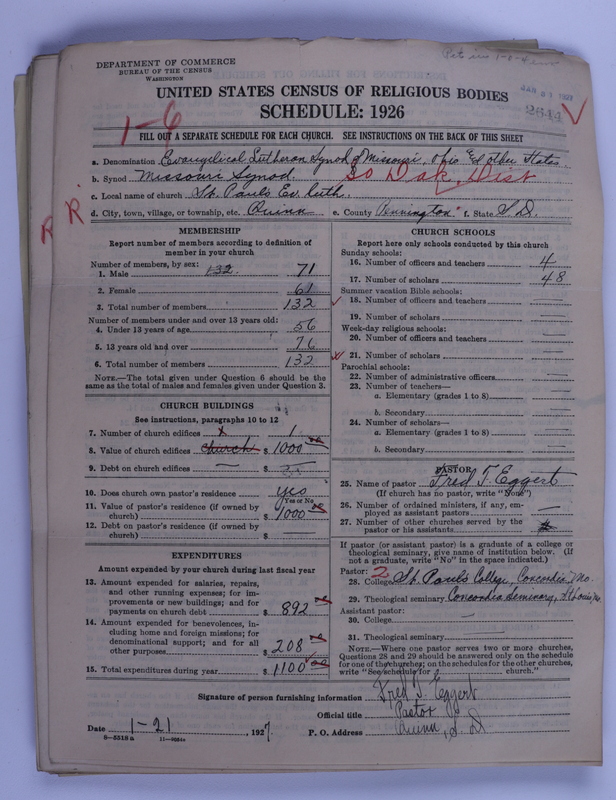 DEPARTMENT OF COMMERCE
BUREAU OF THE CENSUS
WASHINGTON
UNITED STATES CENSUS OF RELIGIOUS BODIES
SCHEDULE: 1926
2644
1-6
FILL OUT A SEPARATE SCHEDULE FOR EACH CHURCH. SEE INSTRUCTIONS ON THE BACK OF THIS SHEET
a. Denomination Evangelical Lutheran Synod of Missouri, Ohio & other States
b. Synod Missouri Synod. So Dak, Dist
c. Local name of church St. Pauls Ev. Luth.
d. City, town, village, or township, etc. Quinn e. County Pennington f. State S. D.
R R
MEMBERSHIP
Report number of members according to definition of
member in your church
Number of members, by sex:
1. Male 132 71
2. Female 61
3. Total number of members 132
Number of members under and over 13 years old:
4. Under 13 years of age 56
5. 13 years old and over 76
6. Total number of members 132
NOTE.—The total given under Question 6 should be the
same as the total of males and females given under Question 3.
CHURCH BUILDINGS
See instructions, paragraphs 10 to 12
7. Number of church edifices 1
8. Value of church edifices church $ 1000
9. Debt on church edifices — $
10. Does church own pastor's residence yes
(Yes or No)
11. Value of pastor's residence (if owned by
church) $ 1000
12. Debt on pastor's residence (if owned by
church) $
EXPENDITURES
Amount expended by your church during last fiscal year
13. Amount expended for salaries, repairs,
and other running expenses; for im-
provements or new buildings; and for
payments on church debt $ 892
14. Amount expended for benevolences, in-
cluding home and foreign missions; for
denominational support; and for all
other purposes $ 208
15. Total expenditures during year $ 1100
CHURCH SCHOOLS
Report here only schools conducted by this church
Sunday schools:
16. Number of officers and teachers 4
17. Number of scholars 48
Summer vacation Bible schools:
18. Number of officers and teachers —
19. Number of scholars
Week-day religious schools:
20. Number of officers and teachers
21. Number of scholars
Parochial schools:
22. Number of administrative officers
23. Number of teachers—
a. Elementary (grades 1 to 8)
b. Secondary
24. Number of scholars—
a. Elementary (grades 1 to 8)
b. Secondary
PASTOR
25. Name of pastor Fred T. Eggert
(If church has no pastor, write "None")
26. Number of ordained ministers, if any, em-
ployed as assistant pastors —
27. Number of other churches served by the
pastor or his assistants
If pastor (or assistant pastor) is a graduate of a college or
theological seminary, give name of institution below. (If
not a graduate, write "No" in the space indicated.)
Pastor: 2
28. College St. Paul's College, Concordia, Mo.
29. Theological seminary Concordia Seminary, St Louis, Mo.
Assistant pastor:
30. College —
31. Theological seminary —
NOTE.—Where one pastor serves two or more churches,
Questions 28 and 29 should be answered only on the schedule
for one of the churches; on the schedules for the other churches,
write "See schedule for church."
Signature of person furnishing information Fred T. Eggert
Official title Pastor
Date 1-21, 1927 P. O. Address Quinn, S. D
8—5518 a